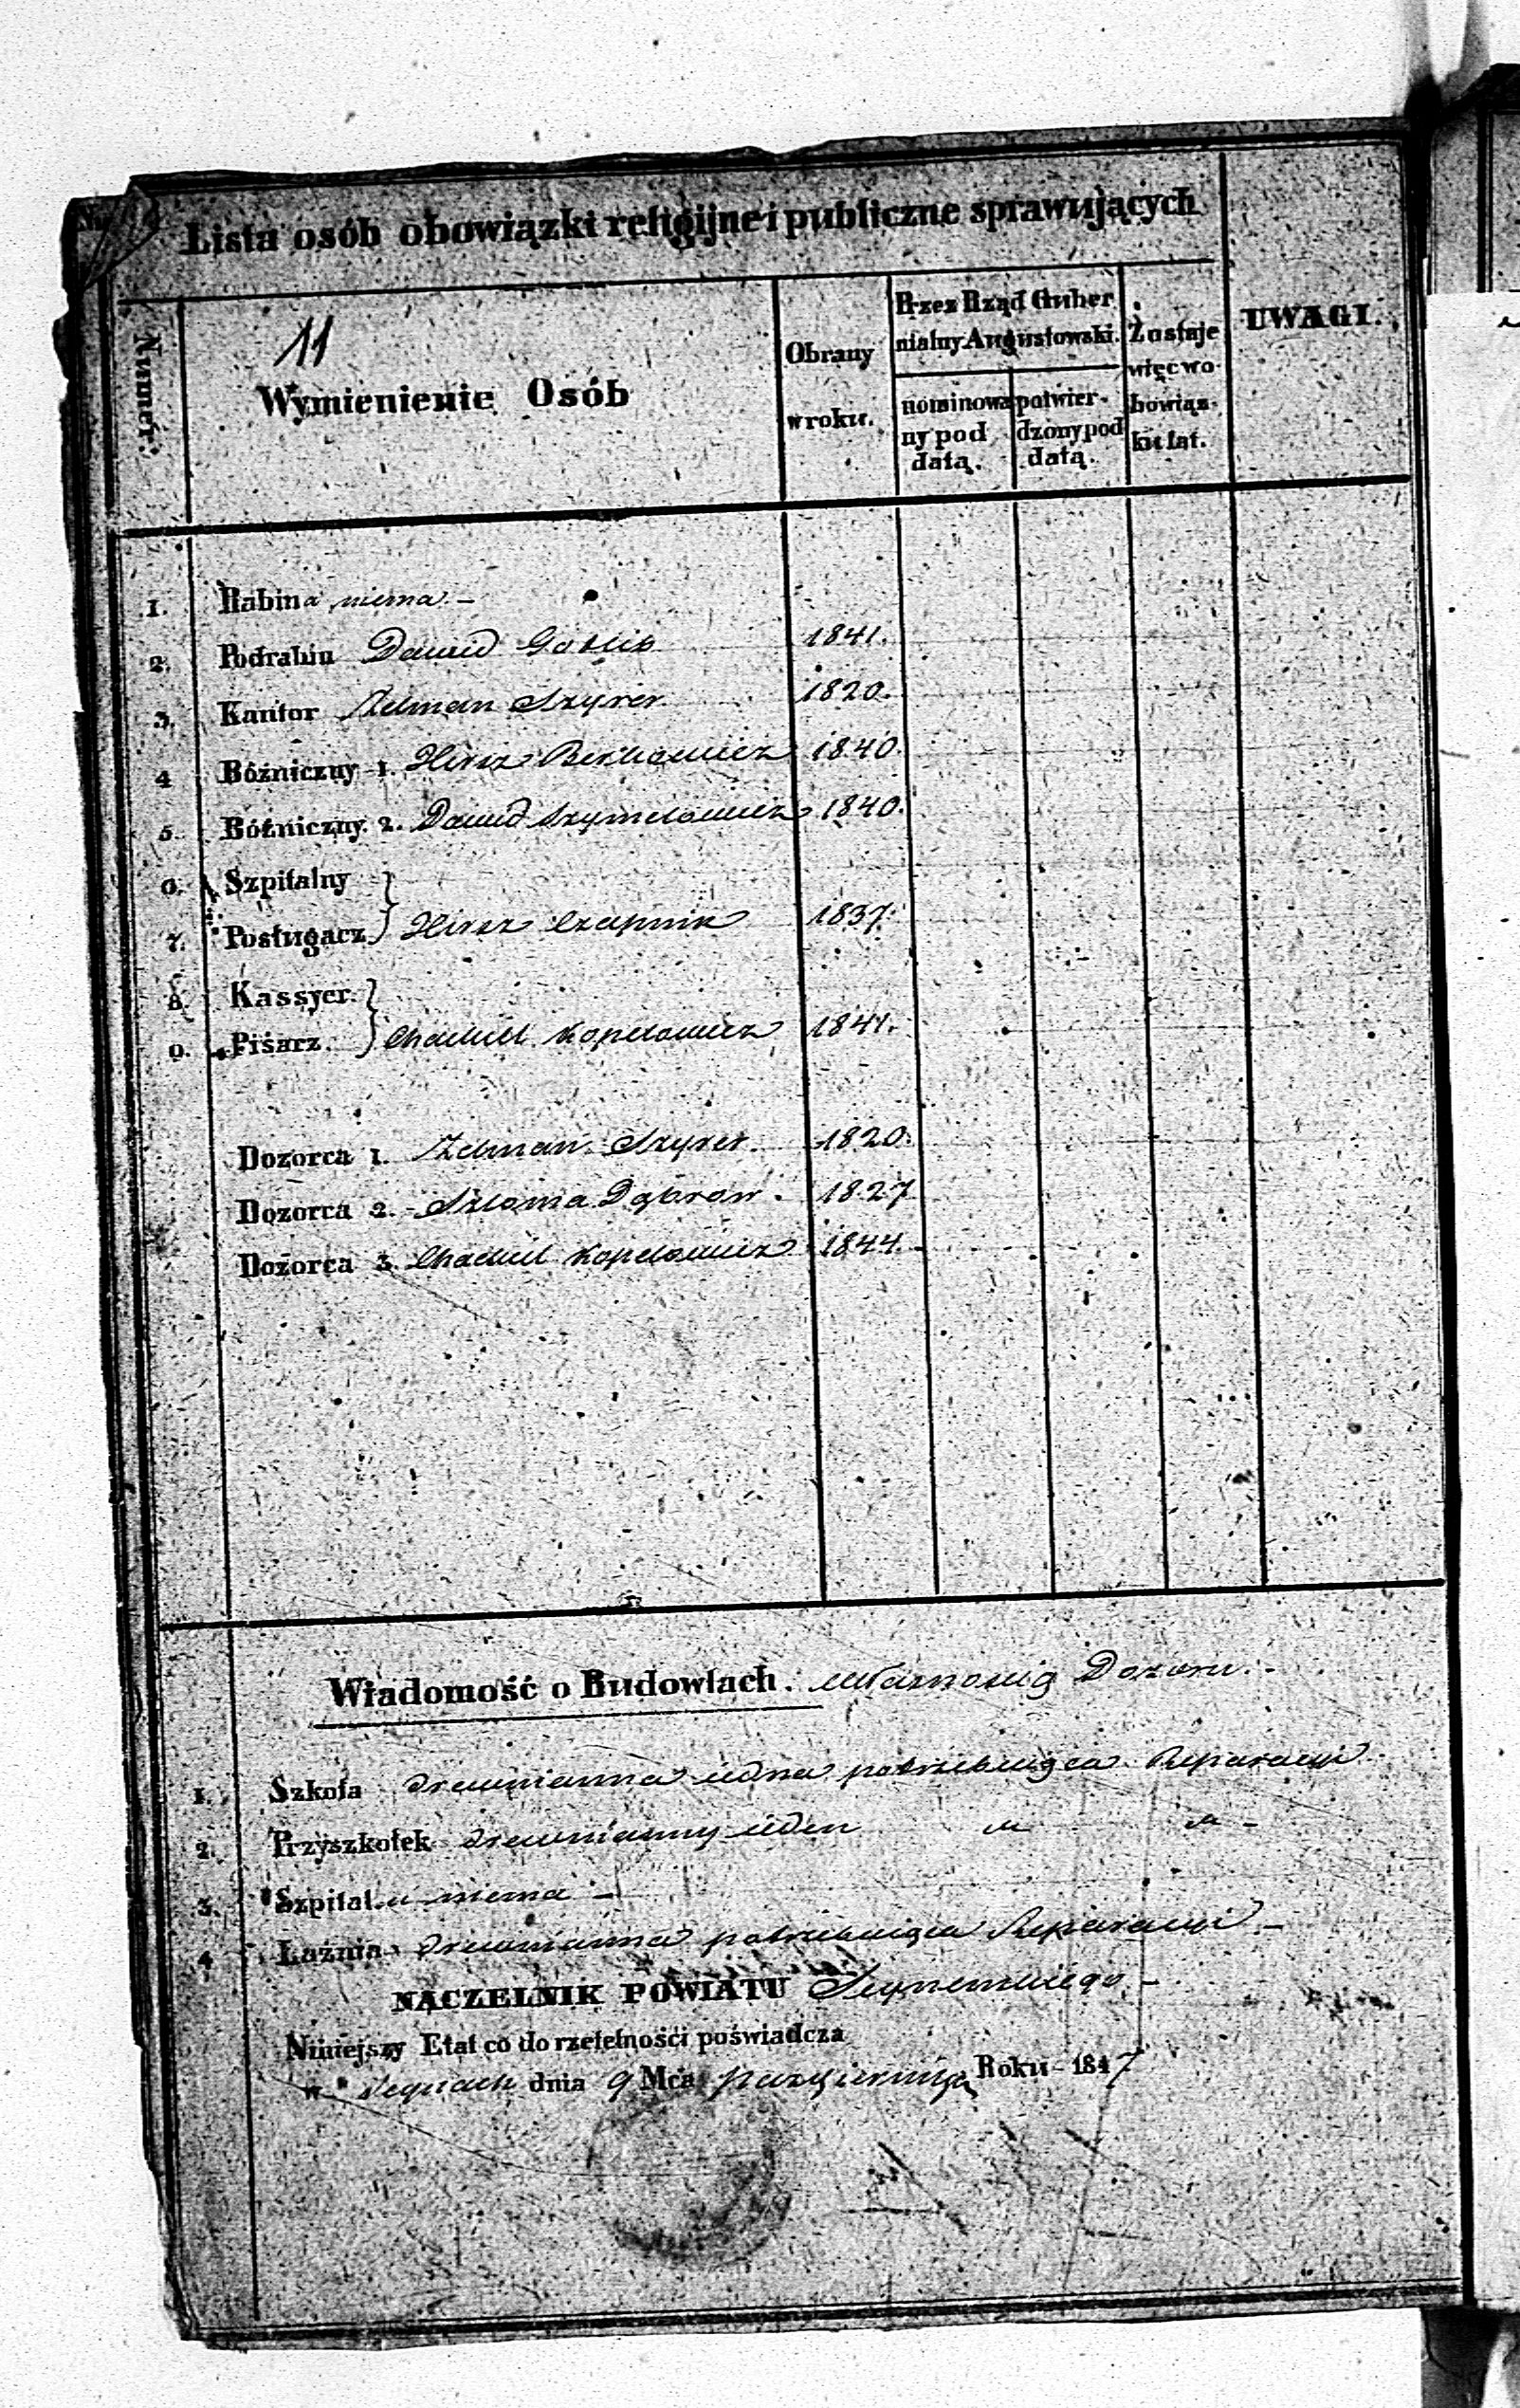 Lista osób obowiązki religijne i publiczne sprawujących
Numer.
11
Wymienienie Osób
Obrany w roku.
Przez Rząd Guber nialny Augustowski.
nominowa ny pod datą.
potwier- dzony pod datą.
Zostaje więc w o- bowiąz- ku lat.
UWAGI.
1. Rabina niema.-
2. Podrabin Dawid Gotlib 1841.
3. Kantor Zelman Szyrer 1820.
4 Bóżniczny 1. Hirsz Berkowicz 1840.
5. Bóżniczny. 2. Dawid Szymelowicz 1840.
6. Szpitalny
7. Posługacz Hirsz Czapnik 1837.
8. Kassyer.
9. Pisarz. Chackiel Kopelowicz 1841.
Dozorca 1. Zelman Szyrer. 1820.
Dozorca 2. Szloma Dąbrow. 1827
Dozorca 3. Chackiel Kopelowicz 1844.
Wiadomość o Budowlach. Dozoru.-
1. Szkoła drewnianna iedna potrzebuiąca Reparacyi
2. Przyszkołek drewnianny ieden " " -
3. Szpital.u niema -
4 Łaźnia drewnianna potrzebuiąca Reparacyi -
NACZELNIK POWIATU Seynenskiego -
Niniejszy Etat co do rzetelności poświadcza
w Seynach dnia 9 Mca Pazdziernika Roku 1847